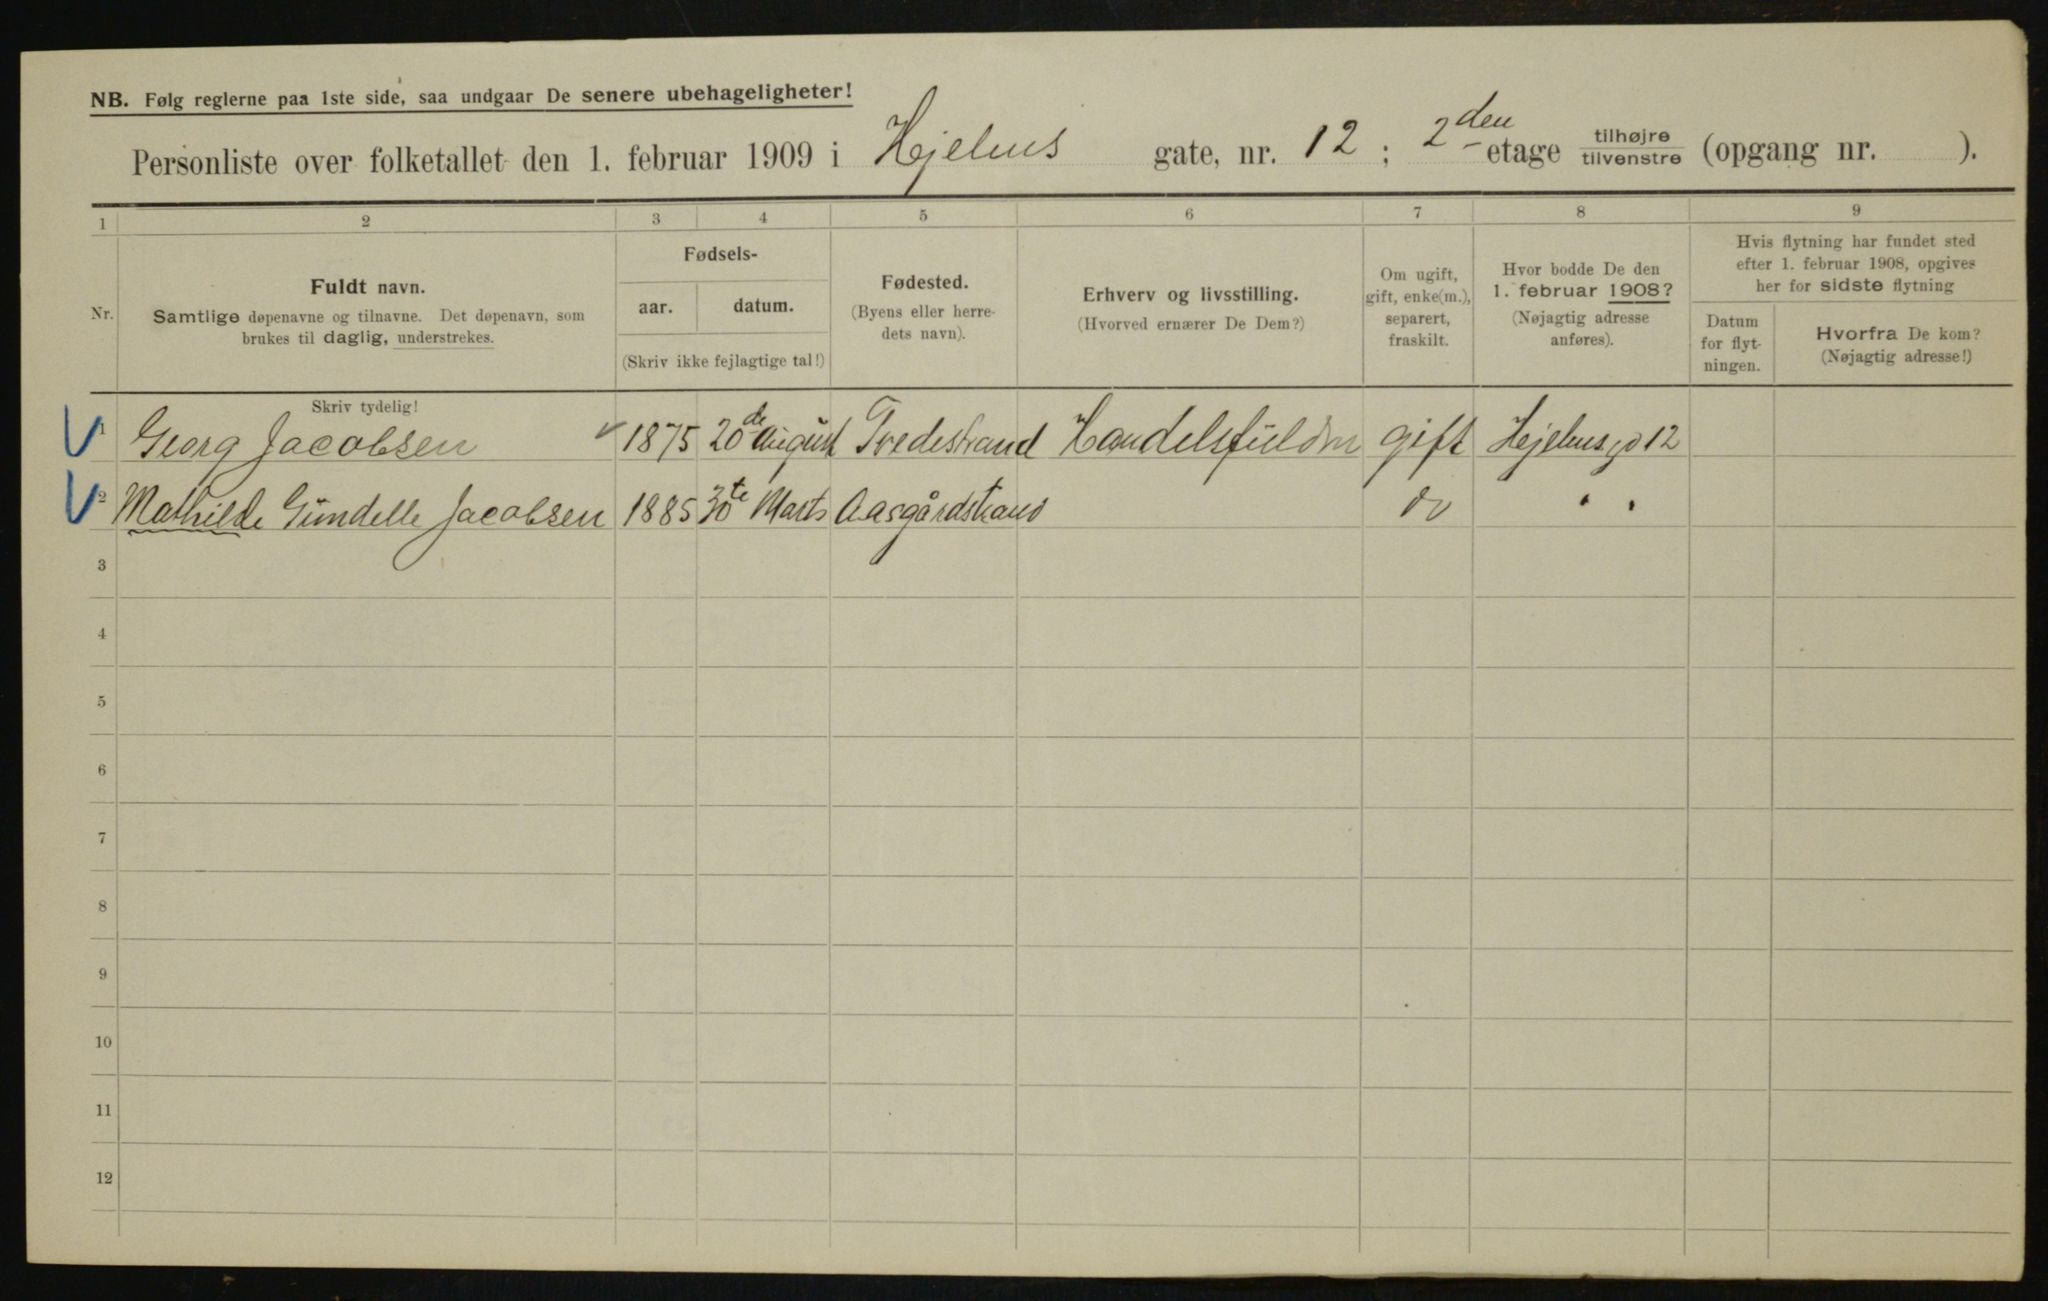 NB. Følg reglerne paa 1ste side, saa undgaar De senere ubehageligheter!
Personliste over folketallet den 1. februar 1909 i Hjelms gate, nr. 12 ; 2den etage tilhøjre tilvenstre (opgang nr. ).
1 2 3 4 5 6 7 8 9
Nr.
Fuldt navn.
Samtlige døpenavne og tilnavne. Det døpenavn, som
brukes til daglig, understrekes.
Fødsels-
aar. datum.
(Skriv ikke fejlagtige tal!)
Fødested.
(Byens eller herre-
dets navn).
Erhverv og livsstilling.
(Hvorved ernærer De Dem?)
Om ugift,
gift, enke(m.),
separert,
fraskilt.
Hvor bodde De den
1. februar 1908?
(Nøjagtig adresse
anføres).
Hvis flytning har fundet sted
efter 1. februar 1908, opgives
her for sidste flytning
Datum
for flyt-
ningen.
Hvorfra De kom?
(Nøjagtig adresse!)
Skriv tydelig!
1 Georg Jacobsen 1875 20de august Tvedestrand Handelsfuldm gift Hjelmsgd 12
2 Mathilde Gündelle Jacobsen 1885 30te Marts Aasgårdstrand do " "
3
4
5
6
7
8
9
10
11
12